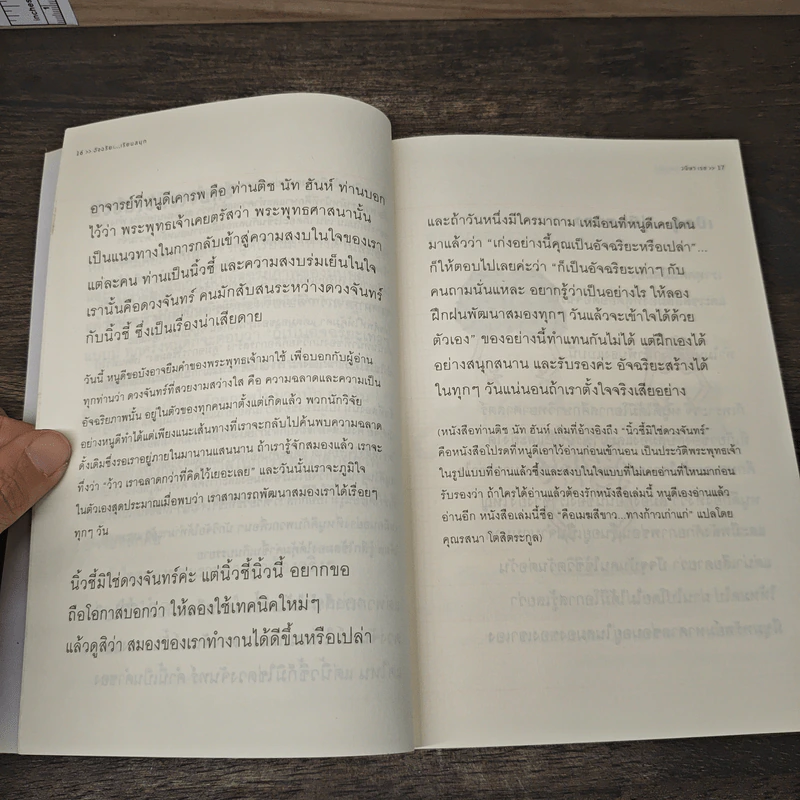 อัจฉริยะ...เรียนสนุก
อาจารย์ที่หนูดีเคารพ คือ ท่านติช นัท ฮันห์ ท่านบอก
ไว้ว่า พระพุทธเจ้าเคยตรัสว่า พระพุทธศาสนานั้น
เป็นแนวทางในการกลับเข้าสู่ความสงบในใจของเรา
แต่ละคน ท่านเป็นนิ้วชี้ และความสงบร่มเย็นในใจ
เรานั้นคือดวงจันทร์ คนมักสับสนระหว่างดวงจันทร์
กับนิ้วชี้ ซึ่งเป็นเรื่องน่าเสียดาย
วันนี้ หนูดีขอบังอาจยืมคำของพระพุทธเจ้ามาใช้ เพื่อบอกกับผู้อ่าน
ทุกท่านว่า ดวงจันทร์ที่สวยงามสว่างใส คือ ความฉลาดและความเป็น
อัจฉริยภาพนั้น อยู่ในตัวของทุกคนมาตั้งแต่เกิดแล้ว พวกนักวิจัย
อย่างหนูดีทำได้แต่เพียงแนะเส้นทางที่เราจะกลับไปค้นพบความฉลาด
ดั้งเดิมซึ่งรอเราอยู่ภายในมานานแสนนาน ถ้าเรารู้จักสมองแล้ว เราจะ
ทึ่งว่า "ว้าว เราฉลาดกว่าที่คิดไว้เยอะเลย" และวันนั้นเราจะภูมิใจ
ในตัวเองสุดประมาณเมื่อพบว่า เราสามารถพัฒนาสมองเราได้เรื่อยๆ
ทุกๆ วัน
นิ้วชี้มิใช่ดวงจันทร์ค่ะ แต่นิ้วชี้นิ้วนี้ อยากขอ
ถือโอกาสบอกว่า ให้ลองใช้เทคนิคใหม่ๆ
แล้วดูสิว่า สมองของเราทำงานได้ดีขึ้นหรือเปล่า
และถ้าวันหนึ่งมีใครมาถาม เหมือนที่หนูดีเคยโดน
มาแล้วว่า "เก่งอย่างนี้คุณเป็นอัจฉริยะหรือเปล่า"...
ก็ให้ตอบไปเลยค่ะว่า "ก็เป็นอัจฉริยะเท่าๆ กับ
คนถามนั่นแหละ อยากรู้ว่าเป็นอย่างไร ให้ลอง
ฝึกฝนพัฒนาสมองทุกๆ วันแล้วจะเข้าใจได้ด้วย
ตัวเอง" ของอย่างนี้ทำแทนกันไม่ได้ แต่ฝึกเองได้
อย่างสนุกสนาน และรับรองค่ะ อัจฉริยะสร้างได้
ในทุกๆ วันแน่นอนถ้าเราตั้งใจจริงเสียอย่าง
(หนังสือท่านติช นัท ฮันห์ เล่มที่อ้างอิงถึง "นิ้วชี้มิใช่ดวงจันทร์"
คือหนังสือโปรดที่หนูดีเอาไว้อ่านก่อนเข้านอน เป็นประวัติพระพุทธเจ้า
ในรูปแบบที่อ่านแล้วซึ้งและสงบในใจแบบที่ไม่เคยอ่านที่ไหนมาก่อน
รับรองว่า ถ้าใครได้อ่านแล้วต้องรักหนังสือเล่มนี้ หนูดีเองอ่านแล้ว
อ่านอีก หนังสือเล่มนี้ชื่อ "คือเมฆสีขาว...ทางก้าวเก่าแก่" แปลโดย
คุณรสนา โตสิตระกูล)